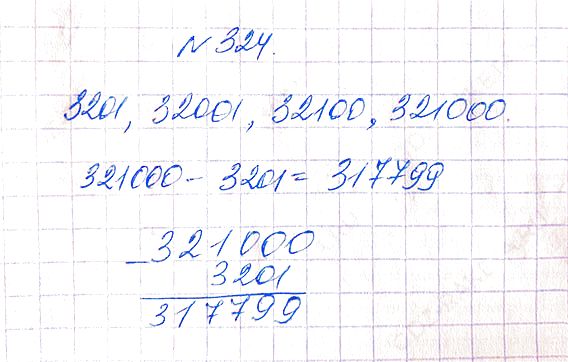 N 324.
3201, 32001, 32100, 321000.
321000 - 3201 = 317799
- 321000
3201
317799